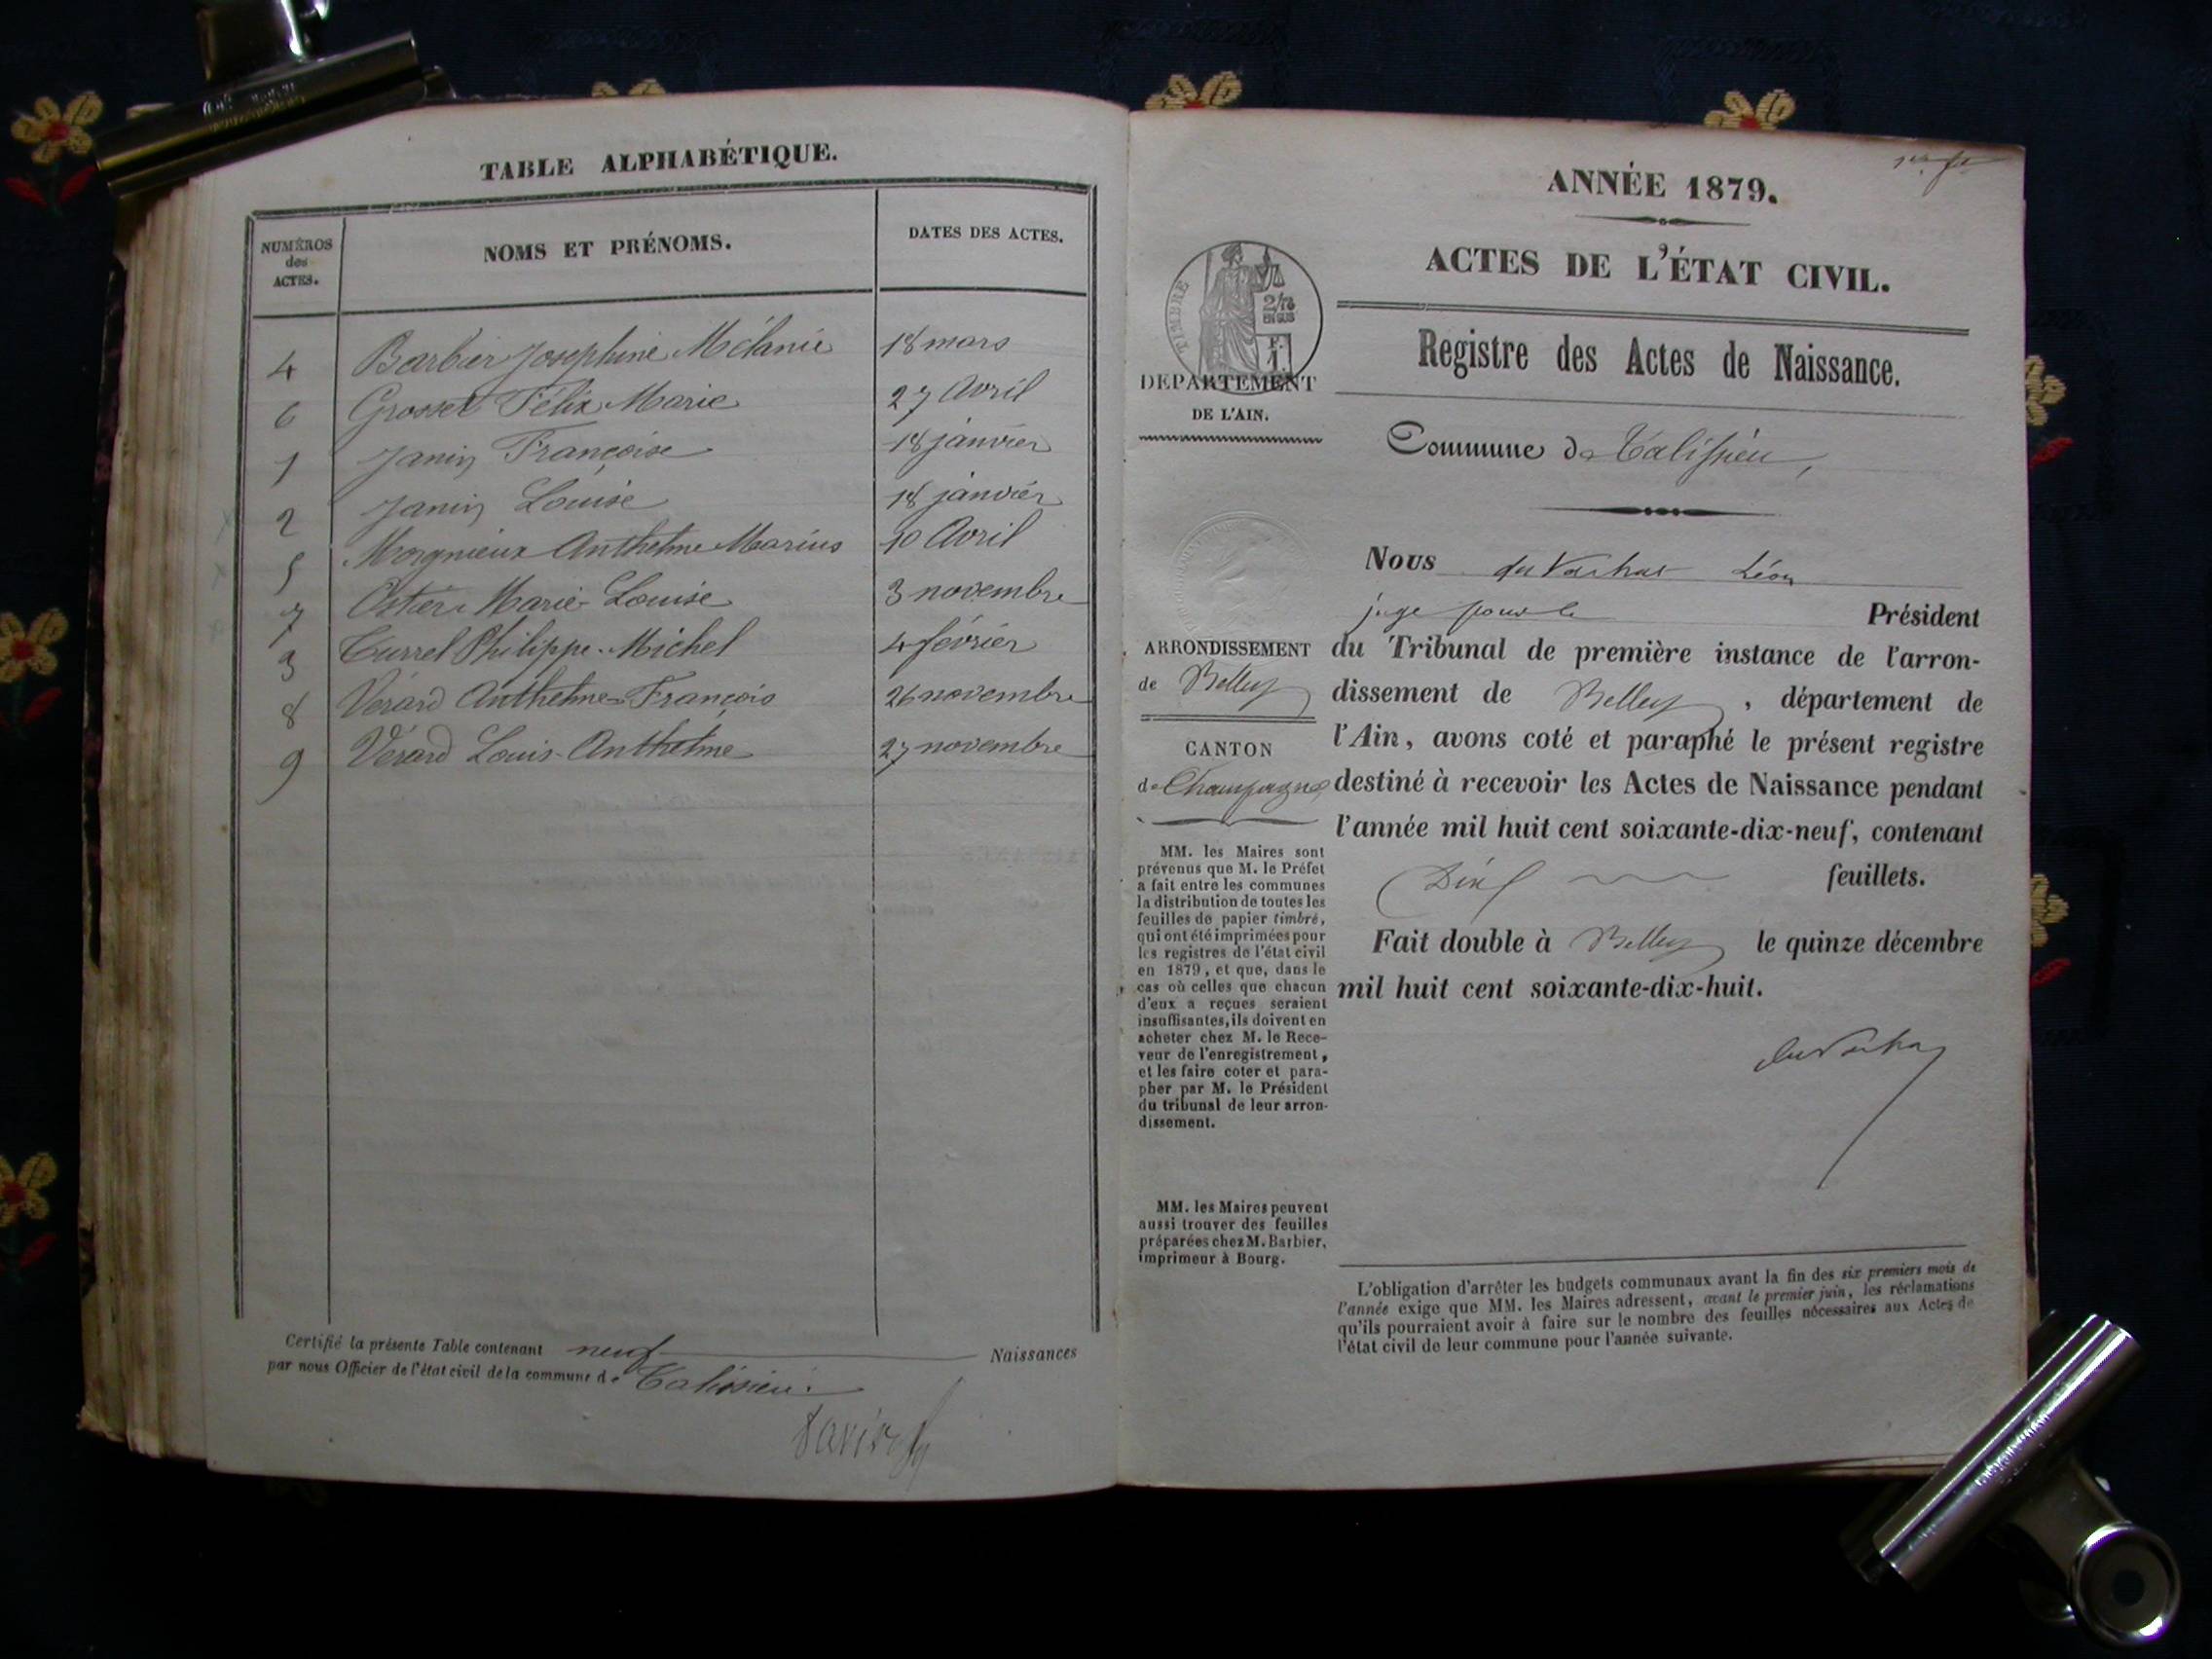 TABLE ALPHABÉTIQUE.
NUMÉROS
des
ACTES.
NOMS ET PRÉNOMS.
DATES DES ACTES.
4 Barbier Joséphine Mélanie 18 mars
6 Grosset Félix Marie 27 Avril
1 Janin Françoise 18 janvier
2 Janin Louise 18 janvier
5 Morgnieux Anthelme Marius 10 Avril
7 Ostier Marie-Louise 3 novembre
3 Turrel Philippe-Michel 4 février
8 Vérard Anthelme-François 26 novembre
9 Vérard Louis-Anthelme 27 novembre
Certifié la présente Table contenant neuf Naissances
par nous Officier de l'état civil de la commune de Talissieu.
ANNÉE 1879.
ACTES DE L'ÉTAT CIVIL.
TIMBRE
2/10
EN SUS
F.
1.
DEPARTEMENT
DE L'AIN.
Registre des Actes de Naissance.
Commune de Talissieu,
Nous Léon
juge pour le Président
ARRONDISSEMENT
de Belley
CANTON
de Champagne
du Tribunal de première instance de l'arron-
dissement de Belley, département de
l'Ain, avons coté et paraphé le présent registre
destiné à recevoir les Actes de Naissance pendant
l'année mil huit cent soixante-dix-neuf, contenant
feuillets.
Fait double à Belley le quinze décembre
mil huit cent soixante-dix-huit.
MM. les Maires sont
prévenus que M. le Préfet
a fait entre les communes
la distribution de toutes les
feuilles de papier timbré,
qui ont été imprimées pour
les registres de l'état civil
en 1879, et que, dans le
cas où celles que chacun
d'eux a reçues seraient
insuffisantes, ils doivent en
acheter chez M. le Rece-
veur de l'enregistrement,
et les faire coter et para-
pher par M. le Président
du tribunal de leur arron-
dissement.
MM. les Maires peuvent
aussi trouver des feuilles
préparées chez M. Barbier,
imprimeur à Bourg.
L'obligation d'arrêter les budgets communaux avant la fin des six premiers mois de
l'année exige que MM. les Maires adressent, avant le premier juin, les réclamations
qu'ils pourraient avoir à faire sur le nombre des feuilles nécessaires aux Actes de
l'état civil de leur commune pour l'année suivante.